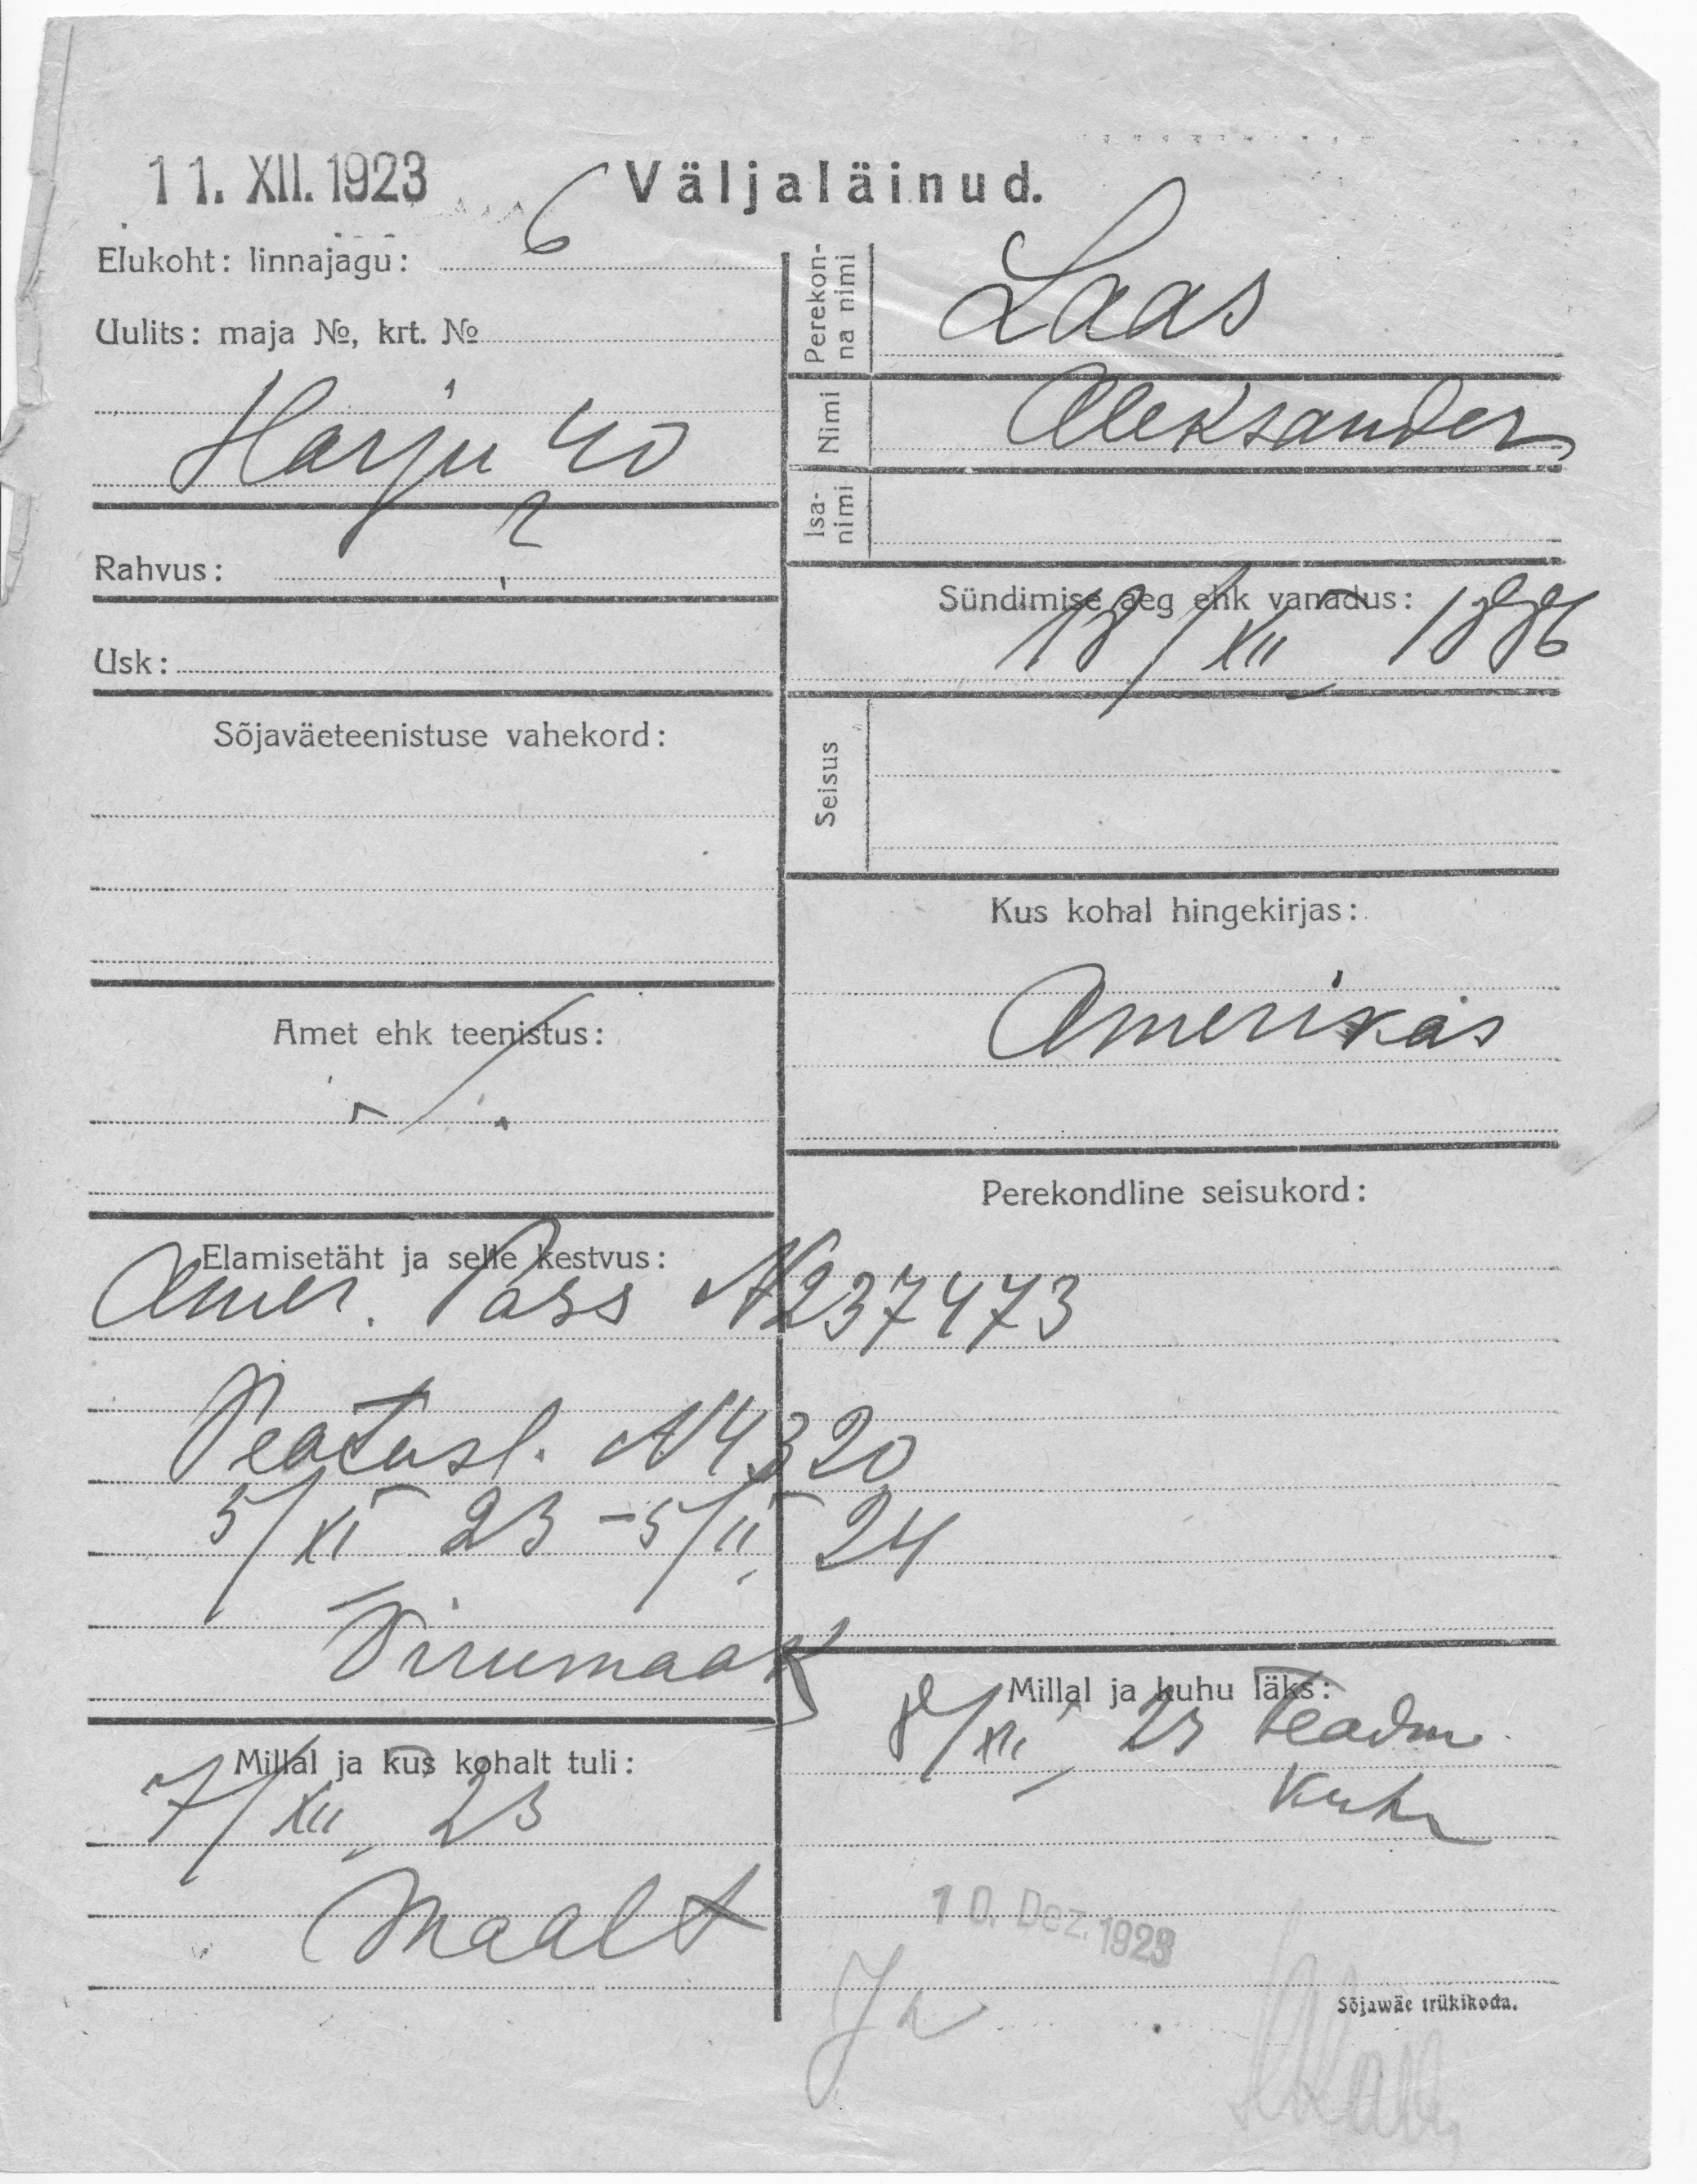 11. XII. 1923
Väljaläinud.
Elukoht: linnajagu: 6
Uulits: maja №, krt. №
Harju 40
2
Rahvus:
Usk:
Sõjaväeteenistuse vahekord:
Amet ehk teenistus:
Elamisetäht ja selle kestvus:
Amer. Pass N237473
Peatusl. N4320
5/XI 23 – 5/II 24
Virumaak
Millal ja kus kohalt tuli:
7/XII 23
Maalt
Perekon-
na nimi
Laas
Nimi
Aleksander
Isa-
nimi
Sündimise aeg ehk vanadus:
18/XII 1886
Seisus
Kus kohal hingekirjas:
Amerikas
Perekondline seisukord:
Millal ja kuhu läks:
8/XII 23 Teadm.
Kuhu
10. Dez. 1923
Sõjawäe trükikoda.